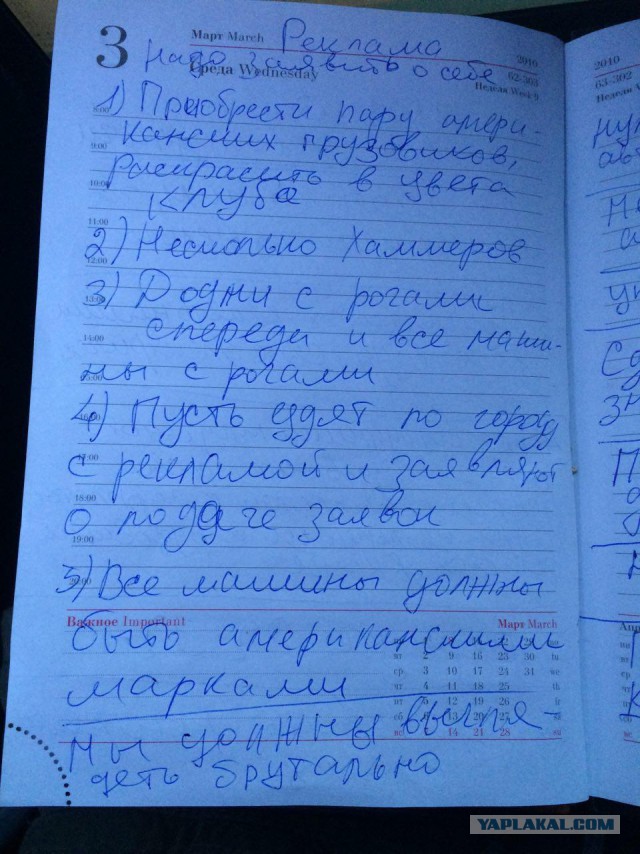 3 Март March Реклама 2010
надо заявить о себе
Среда Wednesday 62-303
Неделя Week 9
8:00 1) Приобрести пару амери-
9:00 канских грузовиков,
10:00 раскрасить в цвета
клуба
11:00
2) Несколько Хаммеров
12:00
13:00 3) Доджи с рогами
14:00 спереди и все маши-
ны с рогами
4) Пусть ездят по городу
17:00 с рекламой и заявляют
18:00
о подаче заявок
19:00
5) Все машины должны
Важное Important Март March
быть американскими
вт 2 9 16 23 30 tu
ср 3 10 17 24 31 we
марками
чт 4 11 18 25 th
12 19 26 fr
сб
мы должны выгля-
вс 14 21 28 su
деть брутально
2010
63-302
Неделя Week
YAPLAKAL.COM